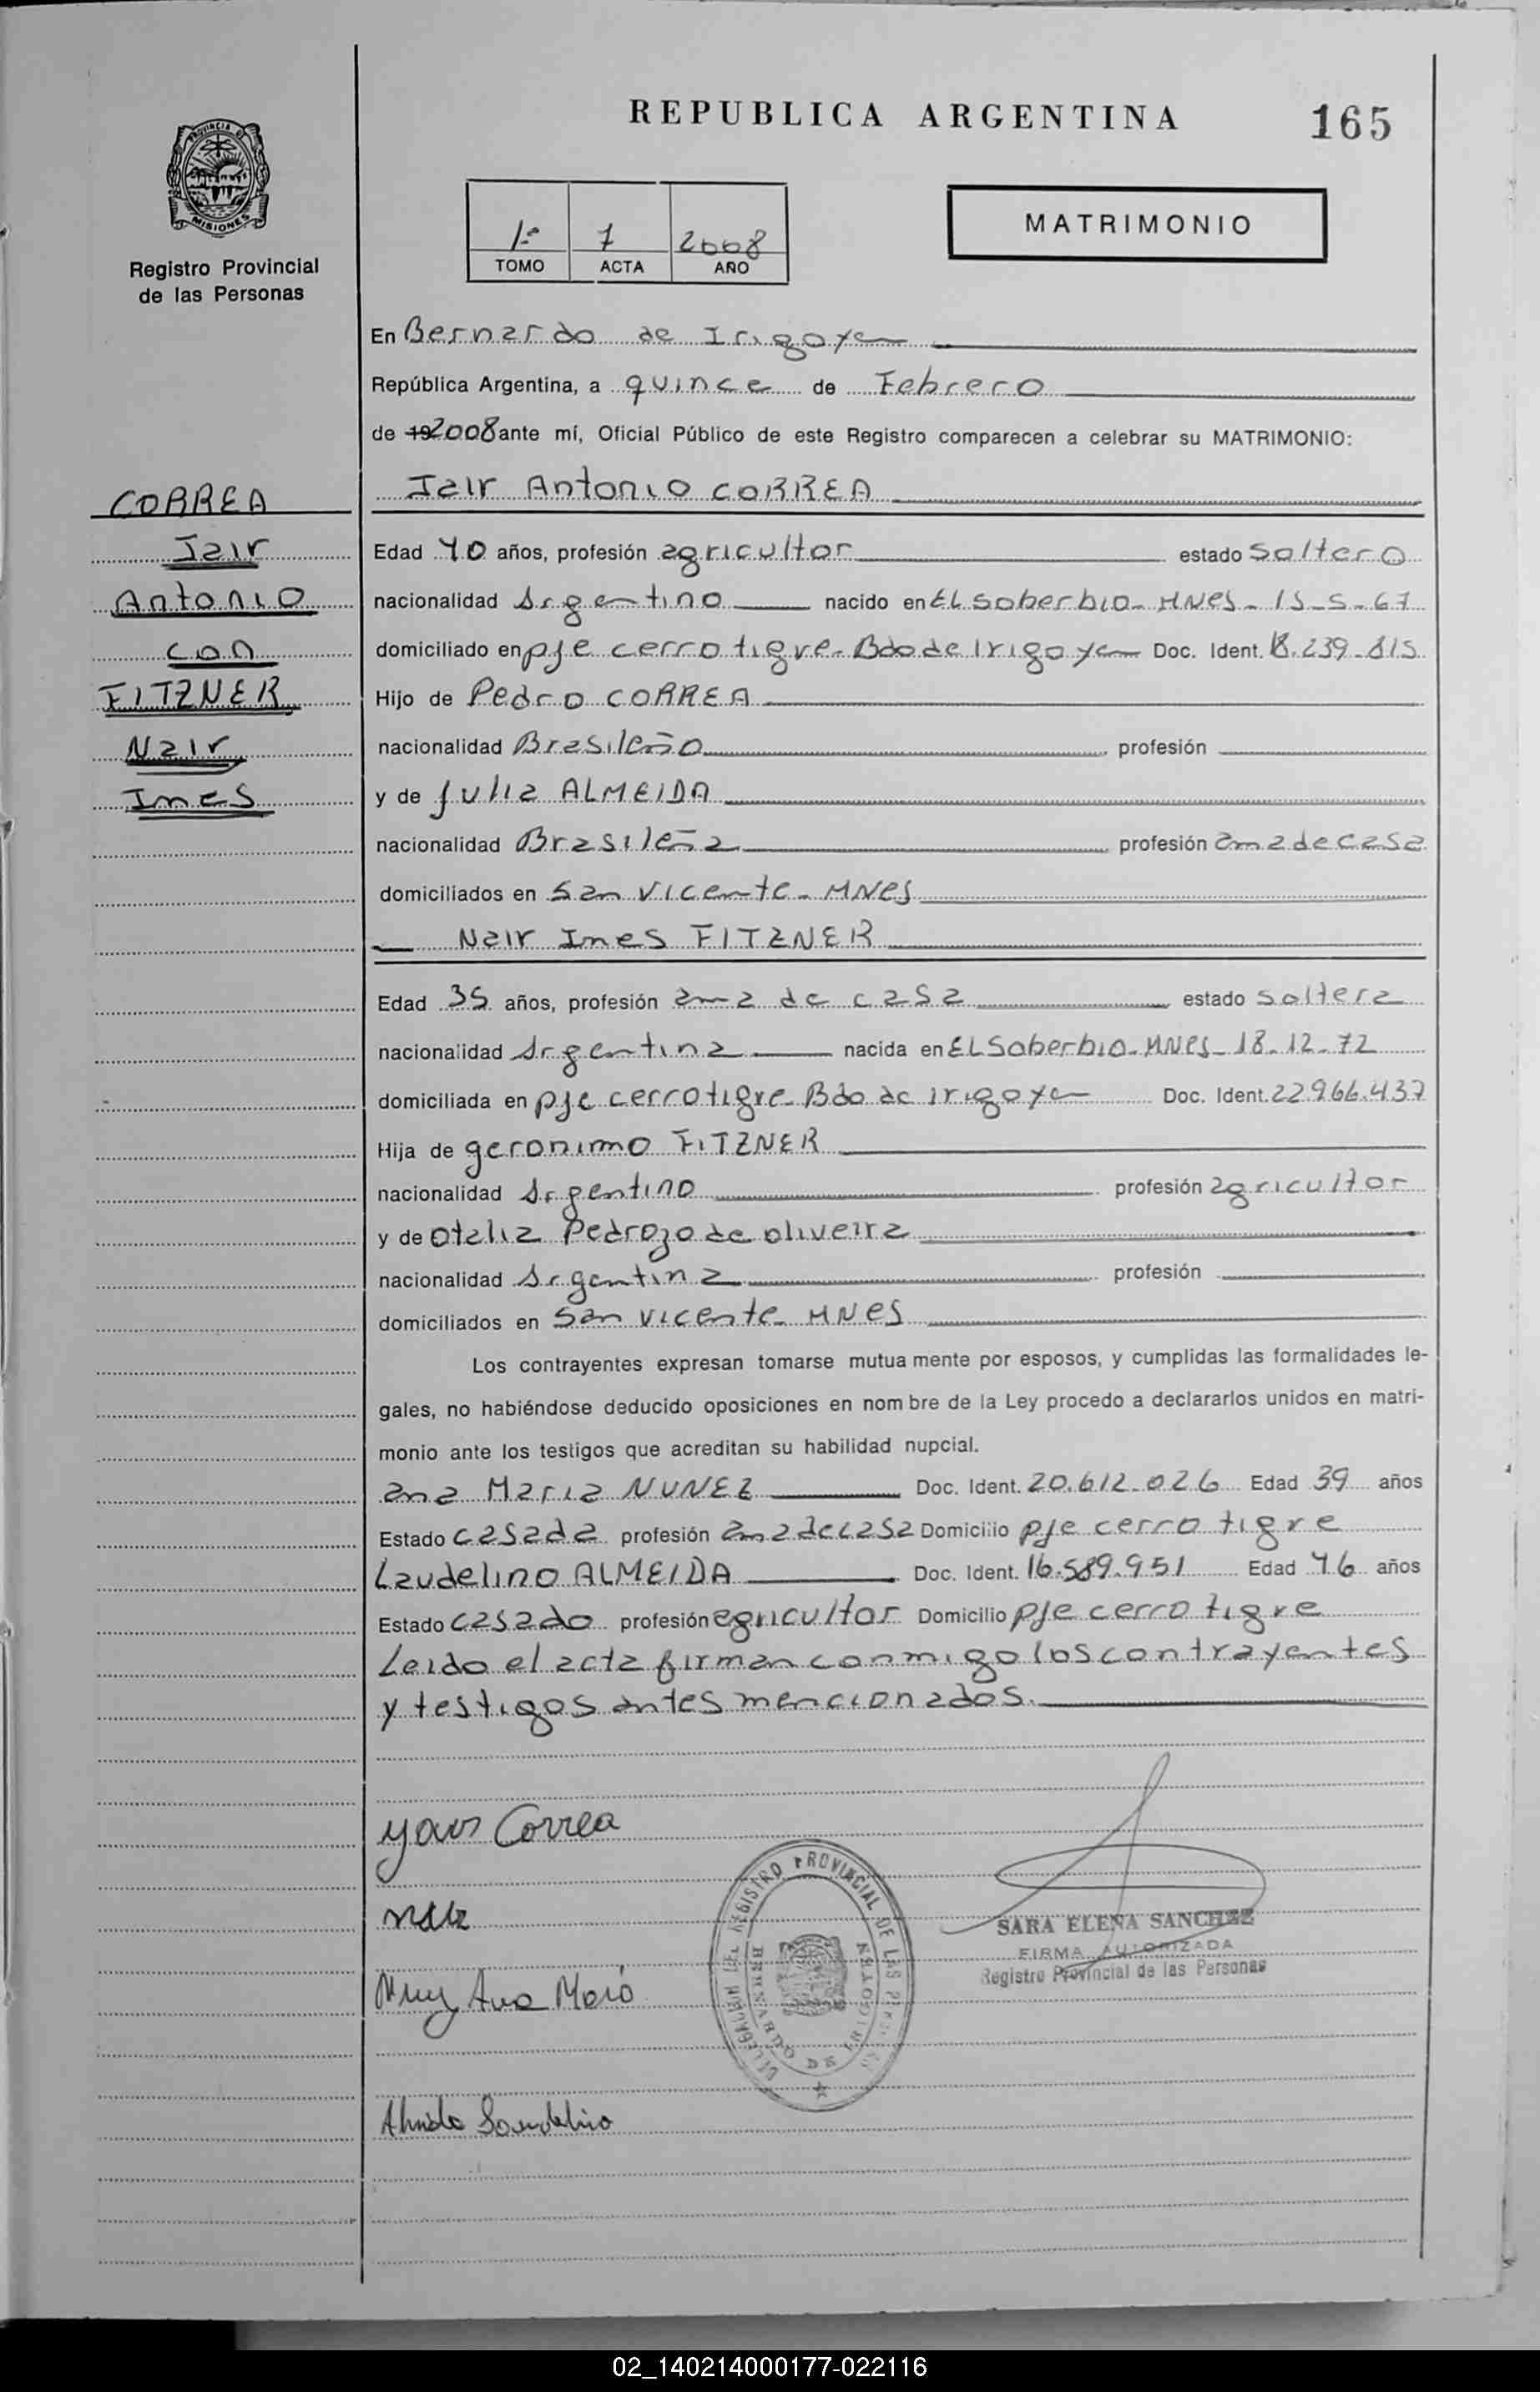 REPUBLICA ARGENTINA
165
PROVINCIA DE
MISIONES
Registro Provincial
de las Personas
1º 7 2008
TOMO ACTA AÑO
MATRIMONIO
En Bernardo de Irigoyen
República Argentina, a quince de Febrero
de 192008 ante mí, Oficial Público de este Registro comparecen a celebrar su MATRIMONIO:
CORREA
Jair
Antonio
con
FITZNER
Nair
Ines
Jair Antonio CORREA
Edad 40 años, profesión agricultor estado soltero
nacionalidad Argentino nacido en EL Soberbio- MNes- 15-5-67
domiciliado en pje cerro tigre- Bdo de Irigoyen Doc. Ident. 18.239.815
Hijo de Pedro CORREA
nacionalidad Brasileño profesión
y de Julia ALMEIDA
nacionalidad Brasileña profesión ama de casa
domiciliados en San Vicente- MNes
Nair Ines FITZNER
Edad 35 años, profesión ama de casa estado soltera
nacionalidad Argentina nacida en EL Soberbio- MNes- 18-12-72
domiciliada en pje cerro tigre- Bdo de irigoyen Doc. Ident. 22.966.437
Hija de geronimo FITZNER
nacionalidad Argentino profesión agricultor
y de Otalia Pedrozo de oliveira
nacionalidad Argentina profesión
domiciliados en San Vicente- MNes
Los contrayentes expresan tomarse mutua mente por esposos, y cumplidas las formalidades le-
gales, no habiéndose deducido oposiciones en nom bre de la Ley procedo a declararlos unidos en matri-
monio ante los testigos que acreditan su habilidad nupcial.
ana Maria NUNEZ Doc. Ident. 20.612.026 Edad 39 años
Estado casada profesión ama de casa Domicilio pje cerro tigre
Laudelino ALMEIDA Doc. Ident. 16.589.951 Edad 46 años
Estado casado profesión agricultor Domicilio pje cerro tigre
Leido el acta firman conmigo los contrayentes
y testigos antes mencionados.
Correa
SARA ELENA SANCHEZ
FIRMA AUTORIZADA
Registro Provincial de las Personas
DELEGACION DEL REGISTRO PROVINCIAL DE LAS
BERNARDO DE IRIGOYEN
02_140214000177-022116